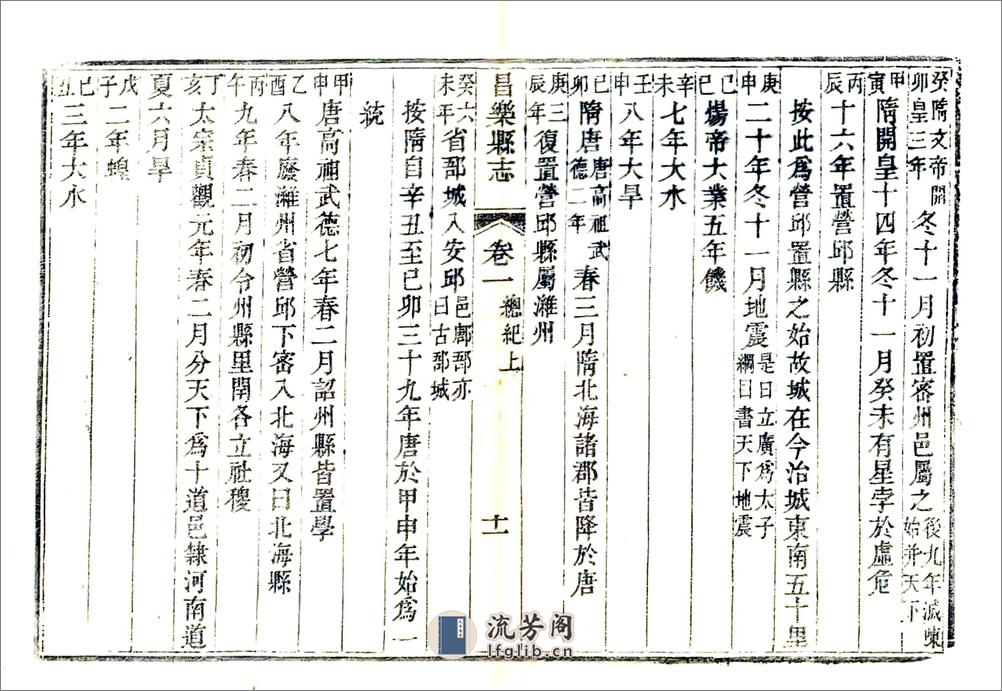 癸卯隋文帝開皇三年冬十一月初置密州邑屬之後九年滅陳始并天下
甲寅隋開皇十四年冬十一月癸未有星孛於虛危
丙辰十六年置營邱縣
按此爲營邱置縣之始故城在今治城東南五十里
庚申二十年冬十一月地震是日立廣爲太子綱目書天下地震
己巳煬帝大業五年饑
辛未七年大水
壬申八年大旱
己卯隋唐唐高祖武德二年春三月隋北海諸郡皆降於唐
庚辰三年復置營邱縣屬濰州
癸未六年省郚城入安邱邑鄌郚亦曰古郚城
按隋自辛丑至己卯三十九年唐於甲申年始爲一
統
甲申唐高祖武德七年春二月詔州縣皆置學
乙酉八年廢濰州省營邱下密入北海又曰北海縣
丙午九年春二月初令州縣里閈各立社稷
丁亥太宗貞觀元年春二月分天下爲十道邑隸河南道
夏六月旱
戊子二年蝗
己丑三年大水
昌樂縣志
卷一
總紀上
十一
流芳阁
lfglib.cn